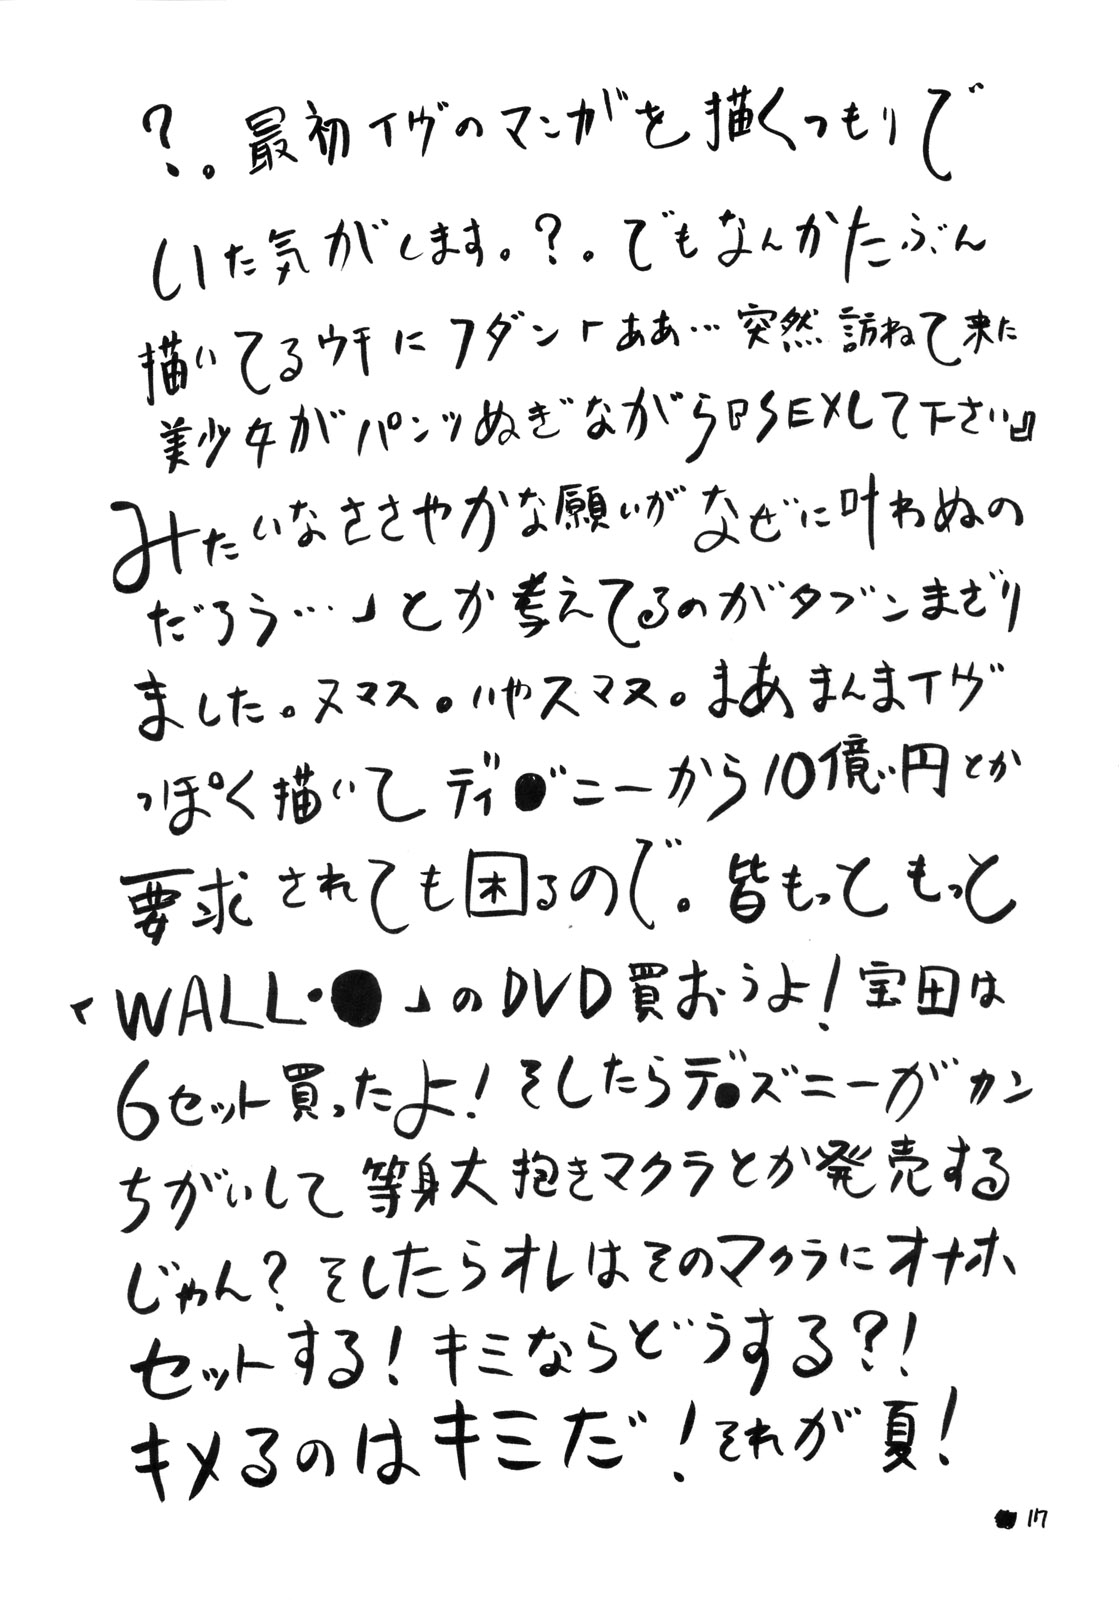 ?。最初イヴのマンガを描くつもりで
いた気がします。?。でもなんかたぶん
描いてるウチにフダン「ああ…突然訪ねて来た
美少女がパンツぬぎながら『SEXして下さい』
みたいなささやかな願いがなぜに叶わぬの
だろう…」とか考えてるのがタブンまざり
ました。ヌマス。いやスマヌ。まあまんまイヴ
っぽく描いてディ●"ニーから10億円とか
要求されても困るので。皆もっともっと
「WALL・●」のDVD買おうよ!宝田は
6セット買ったよ!そしたらデ●ズニーがカン
ちがいして等身大抱きマクラとか発売する
じゃん?そしたらオレはそのマクラにオナホ
セットする!キミならどうする?!
キメるのはキミだ!それが夏!
17